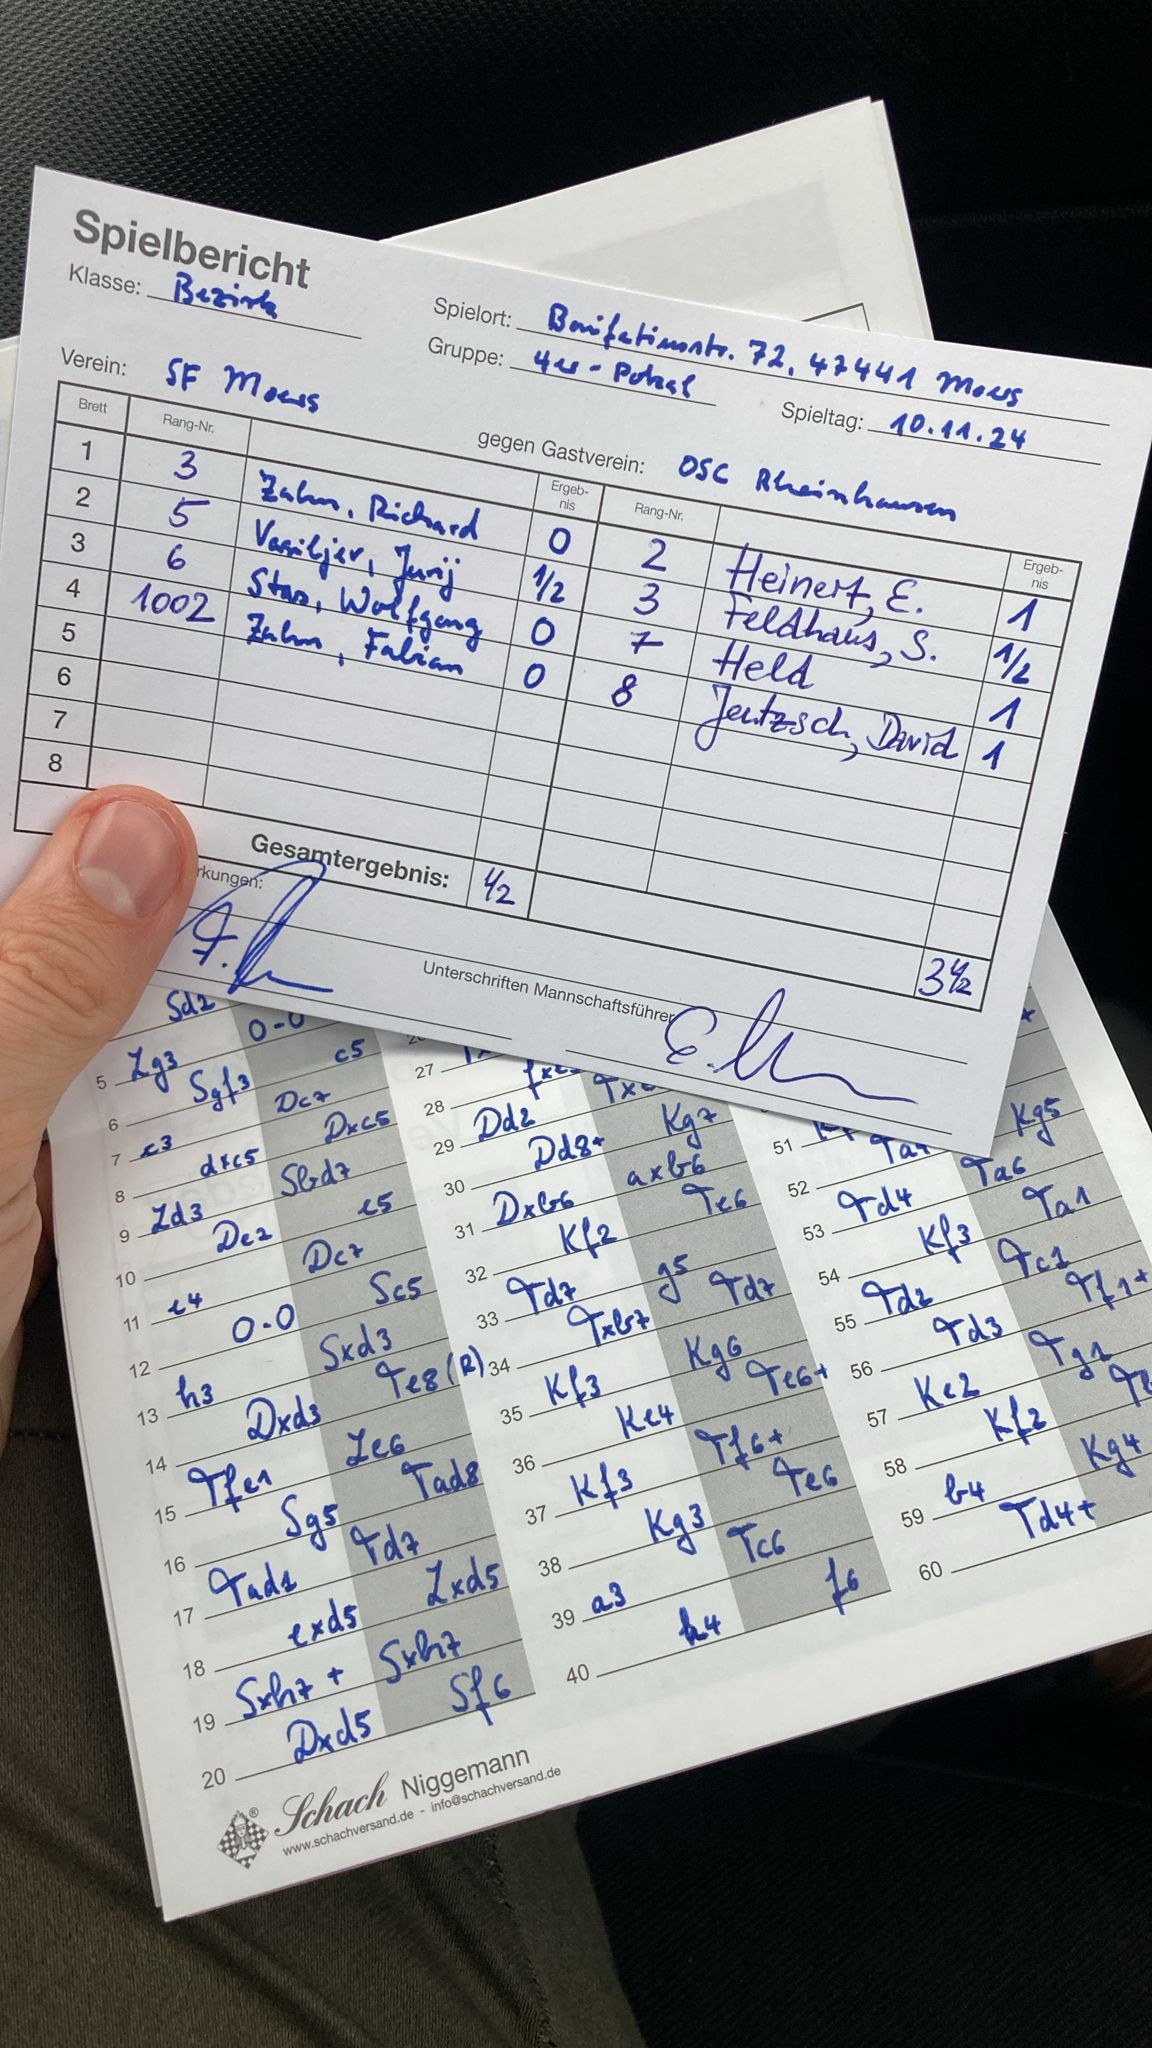 Spielbericht
Klasse: Bezirk
Spielort: Bonifatiusstr. 72, 47441 Moers
Gruppe: 4er-Pokal
Spieltag: 10.11.24
Verein: SF Moers
gegen Gastverein: OSC Rheinhausen
Brett Rang-Nr. Ergeb-nis Rang-Nr. Ergeb-nis
1 3 Zahn, Richard 0 2 Heinert, E. 1
2 5 Vasiljev, Jurij 1/2 3 Feldhaus, S. 1/2
3 6 Stas, Wolfgang 0 7 Held 1
4 1002 Zahn, Fabian 0 8 Jentzsch, David 1
5
6
7
8
Gesamtergebnis: 1/2 3 1/2
rkungen:
Unterschriften Mannschaftsführer
Sd2 0-0
5 Lg3 c5
6 Sgf3 Dc7
7 c3 Dxc5
8 dxc5 Sbd7
9 Ld3 e5
10 De2 Dc7
11 e4 Sc5
12 0-0 Sxd3
13 h3 Te8 (R)
14 Dxd3 Le6
15 Tfe1 Tad8
16 Sg5 Td7
17 Tad1 Lxd5
18 exd5 Sxh7
19 Sxh7+ Sf6
20 Dxd5
27
28
29 Dd2 Kg7
30 Dd8+ axb6
31 Dxb6 Te6
32 Kf2 g5
33 Td7 Td7
34 Txb7 Kg6
35 Kf3 Te6+
36 Ke4 Tf6+
37 Kf3 Te6
38 Kg3 Tc6
39 a3 f6
40 h4
51 Kg5
52 Ta6
53 Td4 Ta1
54 Kf3 Tc1
55 Td2 Tf1+
56 Td3 Tg1
57 Ke2
58 Kf2 Kg4
59 b4
60 Td4+
Schach Niggemann
www.schachversand.de - info@schachversand.de